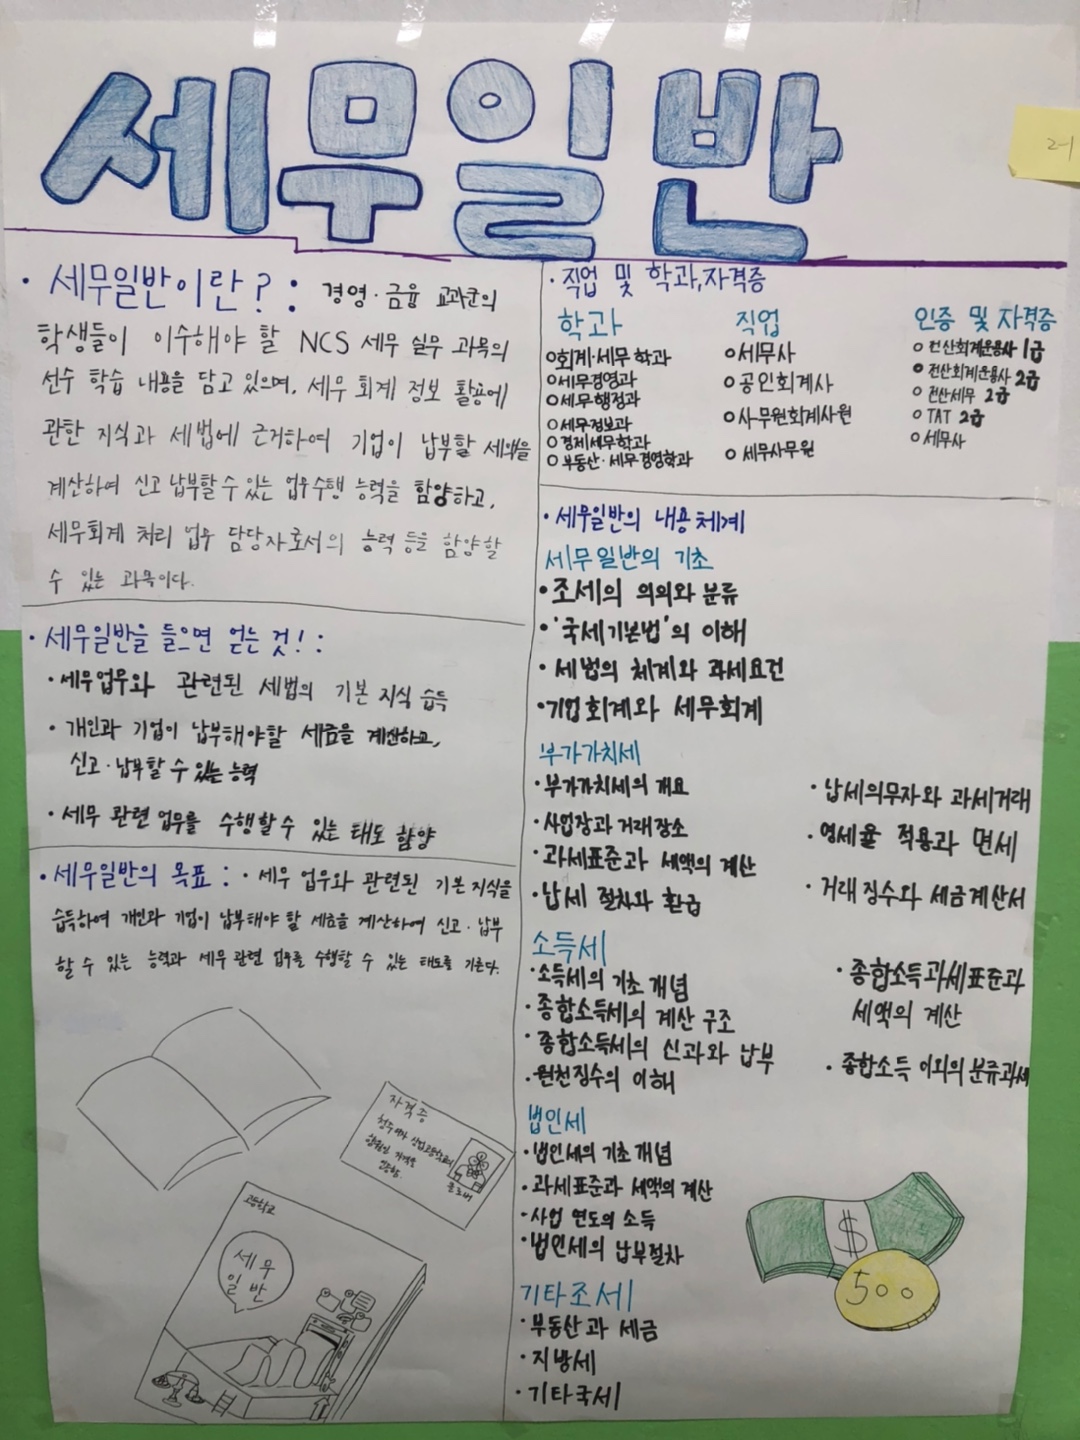 세무일반
2-1
· 세무일반이란? : 경영·금융 교과군의
학생들이 이수해야 할 NCS 세무 실무 과목의
선수 학습 내용을 담고 있으며, 세무 회계 정보 활용에
관한 지식과 세법에 근거하여 기업이 납부할 세액을
계산하여 신고 납부할 수 있는 업무수행 능력을 함양하고,
세무회계 처리 업무 담당자로서의 능력 등을 함양할
수 있는 과목이다.
· 세무일반을 들으면 얻는 것! :
· 세무업무와 관련된 세법의 기본 지식 습득
· 개인과 기업이 납부해야할 세금을 계산하고,
신고·납부할 수 있는 능력
· 세무 관련 업무를 수행할 수 있는 태도 함양
· 세무일반의 목표 : · 세무 업무와 관련된 기본 지식을
습득하여 개인과 기업이 납부해야 할 세금을 계산하여 신고·납부
할 수 있는 능력과 세무 관련 업무를 수행할 수 있는 태도를 기른다.
자격증
고등학교
세무
일반
· 직업 및 학과,자격증
학과
○회계·세무 학과
○세무경영과
○세무행정과
○세무정보과
○경제세무학과
○부동산·세무경영학과
직업
○세무사
○공인회계사
○사무원회계사원
○세무사무원
인증 및 자격증
○전산회계운용사 1급
○전산회계운용사 2급
○전산세무 2급
○TAT 2급
○세무사
· 세무일반의 내용체계
세무일반의 기초
· 조세의 의의와 분류
· '국세기본법'의 이해
· 세법의 체계와 과세요건
· 기업회계와 세무회계
부가가치세
· 부가가치세의 개요
· 사업장과 거래장소
· 과세표준과 세액의 계산
· 납세 절차와 환급
· 납세의무자와 과세거래
· 영세율 적용과 면세
· 거래 징수와 세금계산서
소득세
· 소득세의 기초 개념
· 종합소득세의 계산 구조
· 종합소득세의 신과와 납부
· 원천징수의 이해
· 종합소득과세표준과
세액의 계산
· 종합소득 이외의 분류과세
법인세
· 법인세의 기초개념
· 과세표준과 세액의 계산
· 사업 연도의 소득
· 법인세의 납부절차
기타조세
· 부동산과 세금
· 지방세
· 기타국세
$
500